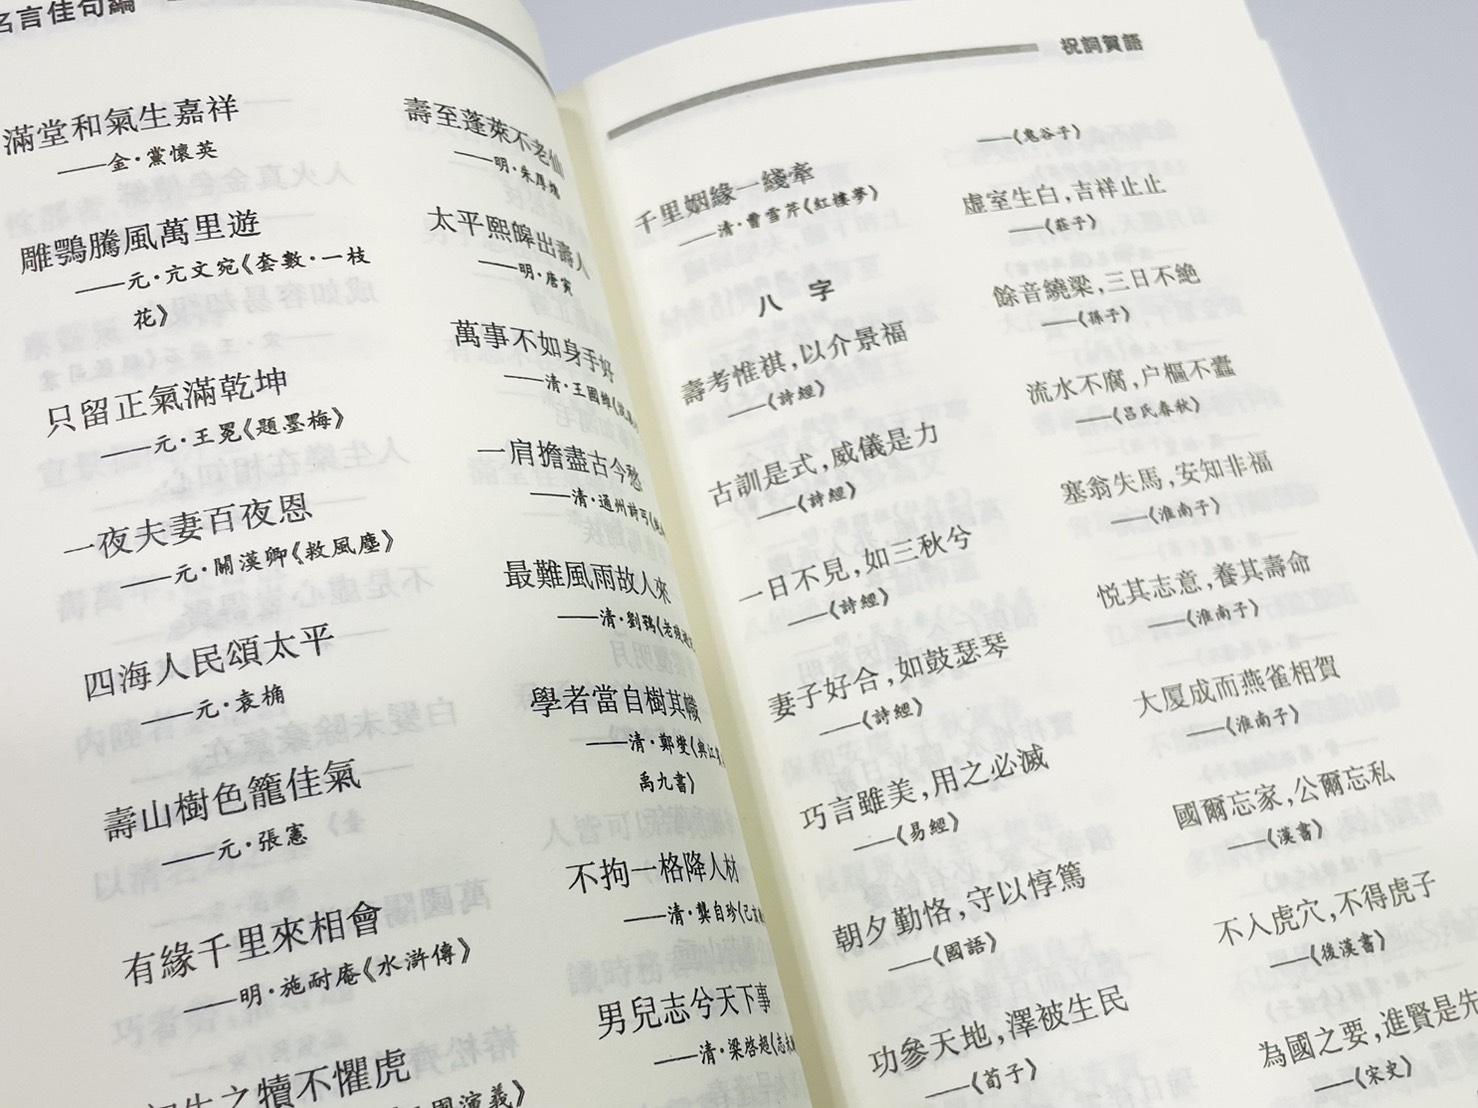 名言佳句編
滿堂和氣生嘉祥
——金·黨懷英
雕鶚騰風萬里遊
——元·亢文宛《套數·一枝
花》
只留正氣滿乾坤
——元·王冕《題墨梅》
一夜夫妻百夜恩
——元·關漢卿《救風塵》
四海人民頌太平
——元·袁桷
壽山樹色籠佳氣
——元·張憲
有緣千里來相會
——明·施耐庵《水滸傳》
初生之犢不懼虎
國演義》
壽至蓬萊不老仙
——明·朱厚熜
太平熙皞出壽人
——明·唐寅
萬事不如身手好
——清·王國維
一肩擔盡古今愁
——清·通州詩丐
最難風雨故人來
——清·劉鶚《老殘遊
學者當自樹其幟
——清·鄭燮《與江賓
禹九書》
不拘一格降人材
——清·龔自珍《己亥
男兒志兮天下事
——清·梁啓超《志未
祝詞賀語
千里姻緣一綫牽
——清·曹雪芹《紅樓夢》
八 字
壽考惟祺,以介景福
——《詩經》
古訓是式,威儀是力
——《詩經》
一日不見,如三秋兮
——《詩經》
妻子好合,如鼓瑟琴
——《詩經》
巧言雖美,用之必滅
——《易經》
朝夕勤恪,守以惇篤
——《國語》
功參天地,澤被生民
——《荀子》
——《鬼谷子》
虛室生白,吉祥止止
——《莊子》
餘音繞梁,三日不絶
——《孫子》
流水不腐,户樞不蠹
——《吕氏春秋》
塞翁失馬,安知非福
——《淮南子》
悦其志意,養其壽命
——《淮南子》
大厦成而燕雀相賀
——《淮南子》
國爾忘家,公爾忘私
——《漢書》
不入虎穴,不得虎子
——《後漢書》
為國之要,進賢是先
——《宋史》